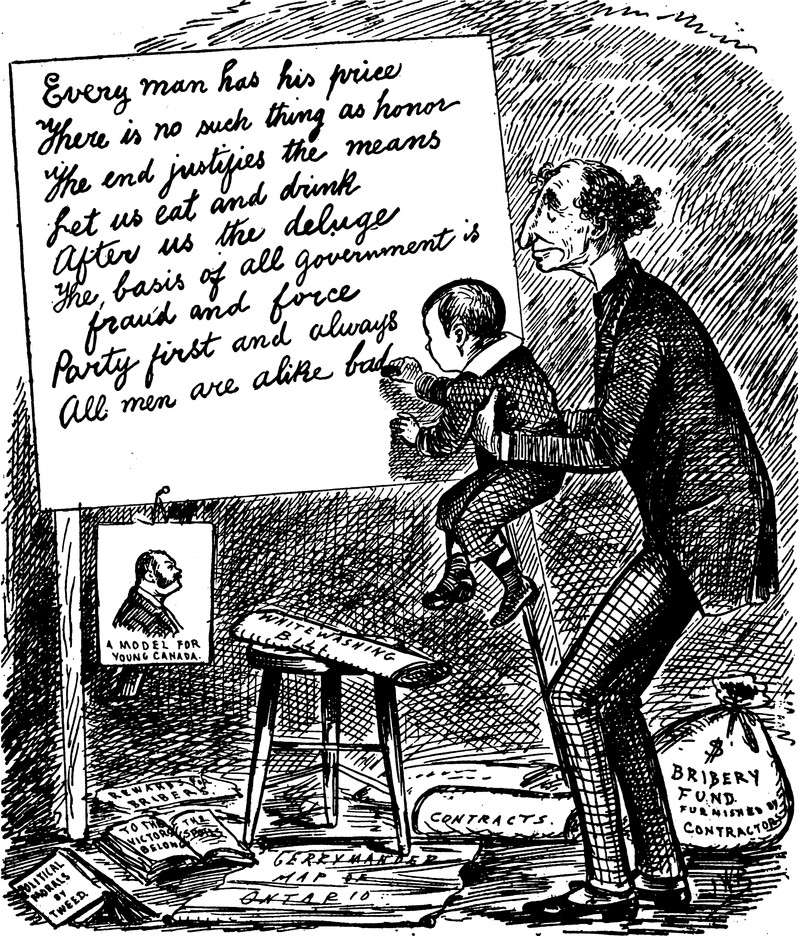 Every man has his price
There is no such thing as honor
The end justifies the means
Let us eat and drink
After us the deluge
The basis of all government is
fraud and force
Party first and always
All men are alike bad
A MODEL FOR
YOUNG CANADA.
WHITEWASHING
BILL
$
BRIBERY
FUND
FURNISHED BY
CONTRACTORS
REWARD OF
BRIBERY
TO THE
VICTORS
BELONG
THE
SPOILS
CONTRACTS.
GERRYMANDER
MAP OF
ONTARIO
POLITICAL
MORALS
BY
TWEED